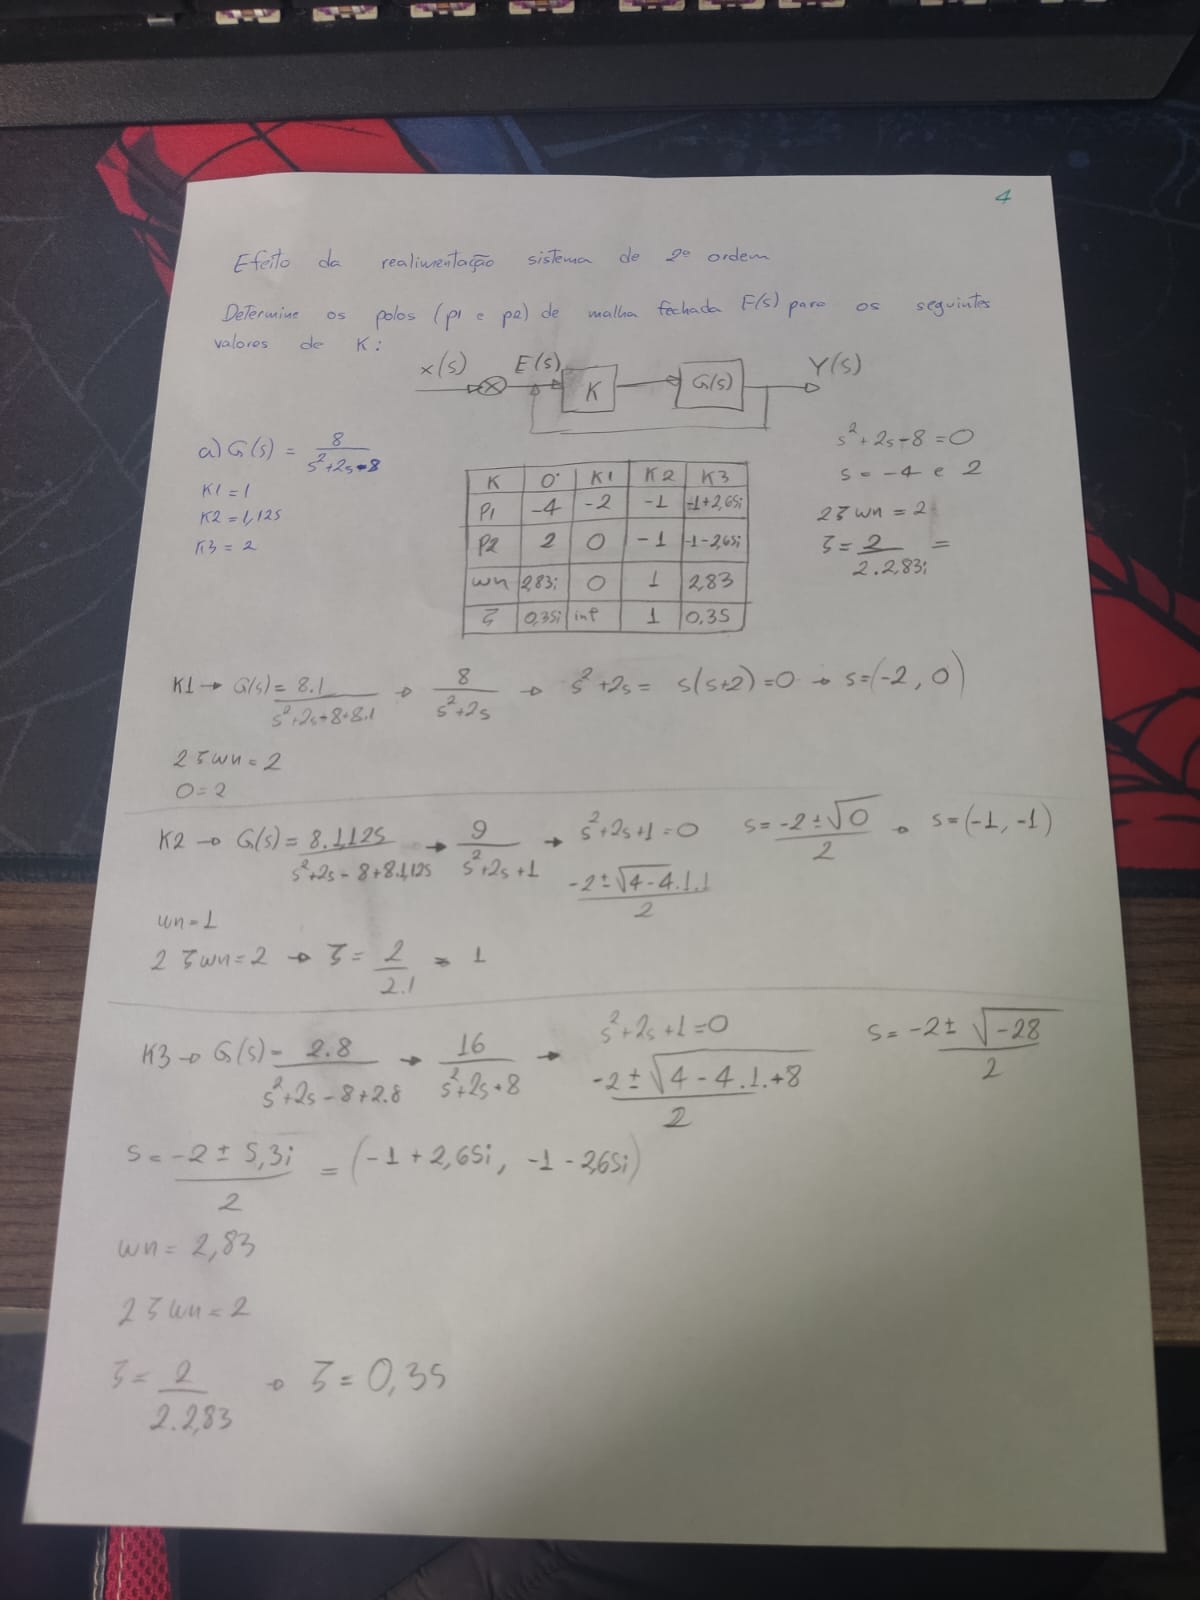 4
Efeito da realimentação sistema de 2ª ordem
Determine os polos (p1 e p2) de malha fechada F(s) para os seguintes
valores de K:
x(s) E(s) K G(s) Y(s)
a) G(s) = 8/(s²+2s-8)
K1 = 1
K2 = 1,125
K3 = 2
K 0 K1 K2 K3
P1 -4 -2 -1 -1+2,65i
P2 2 0 -1 -1-2,65i
wn 2,83i 0 1 2,83
ζ 0,35i inf 1 0,35
s²+2s-8=0
s = -4 e 2
2ζwn = 2
ζ = 2/(2.2,83i) =
K1 → G(s) = 8.1/(s²+2s-8+8.1) → 8/(s²+2s) → s²+2s = s(s+2)=0 → s=(-2, 0)
2ζwn = 2
0 = 2
K2 → G(s) = 8.1,125/(s²+2s-8+8.1,125) → 9/(s²+2s+1) → s²+2s+1=0 s = (-2±√0)/2 → s=(-1, -1)
(-2±√4-4.1.1)/2
wn = 1
2ζwn = 2 → ζ = 2/2.1 → 1
K3 → G(s) = 2.8/(s²+2s-8+2.8) → 16/(s²+2s+8) → s²+2s+1=0 s = (-2±√-28)/2
(-2±√4-4.1.+8)/2
s = (-2±5,3i)/2 = (-1+2,65i, -1-2,65i)
wn = 2,83
2ζwn = 2
ζ = 2/(2.2,83) → ζ = 0,35